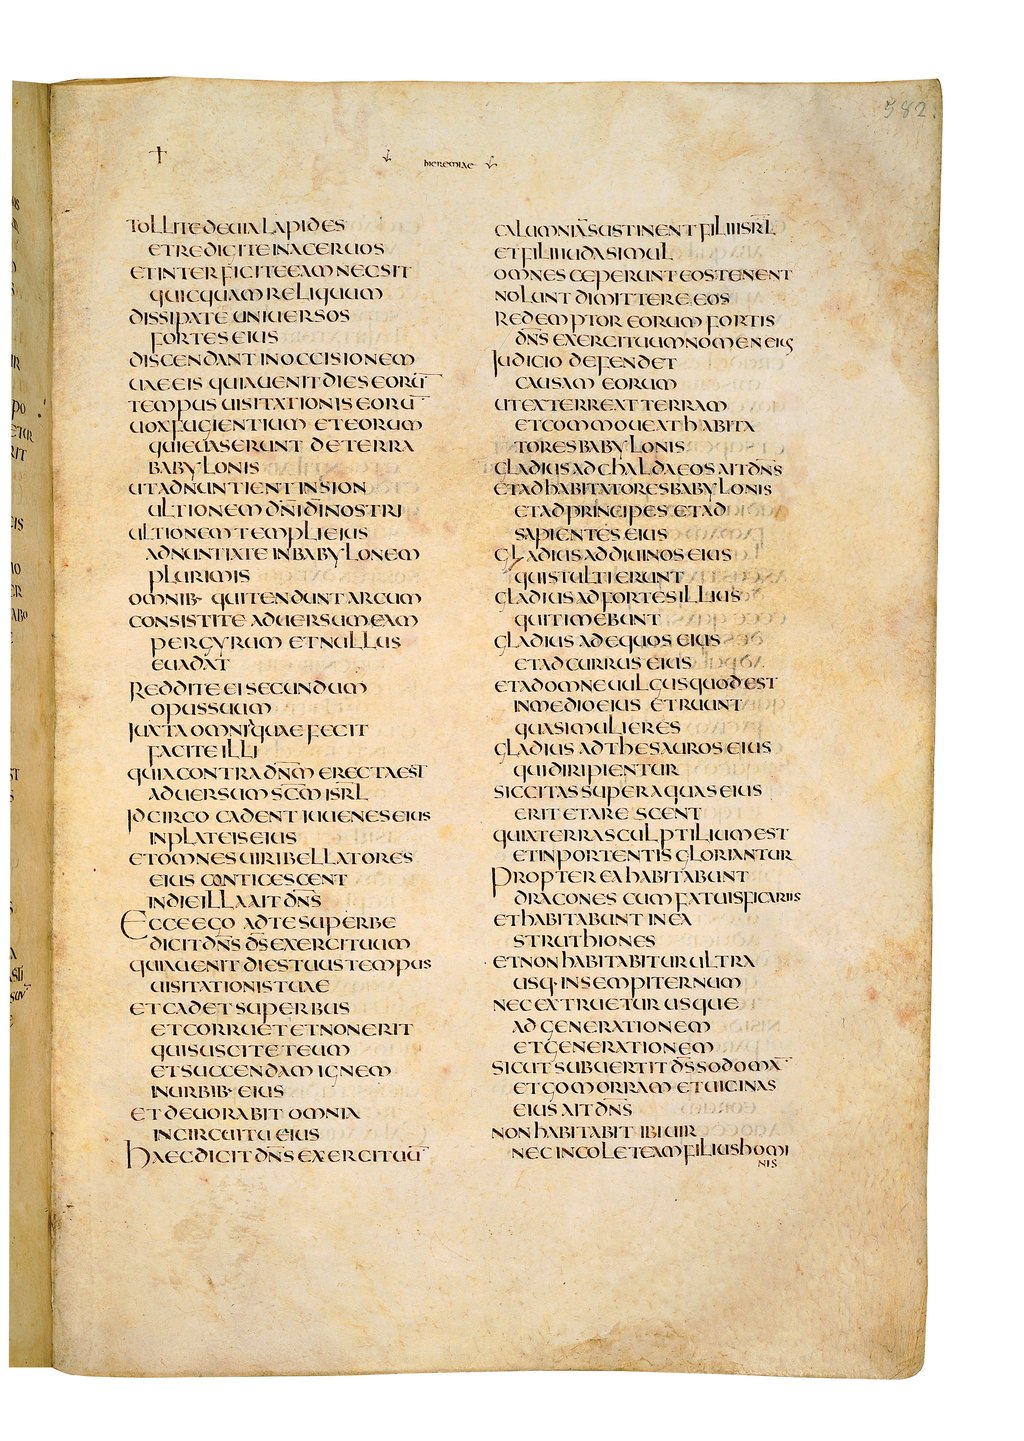 582.
HIEREMIAE
TOLLITE DE UIA LAPIDES
ET REDIGITE IN ACERUOS
ET INTERFICITE EAM NEC SIT
QUICQUAM RELIQUUM
DISSIPATE UNIUERSOS
FORTES EIUS
DISCENDANT IN OCCISIONEM
UAE EIS QUIA UENIT DIES EORU̅
TEMPUS UISITATIONIS EORU̅
UOX FUGIENTIUM ET EORUM
QUI EUASERUNT DE TERRA
BABYLONIS
UT ADNUNTIENT IN SION
ULTIONEM DN̅I DI̅ NOSTRI
ULTIONEM TEMPLI EIUS
ADNUNTIATE IN BABYLONEM
PLURIMIS
OMNIB· QUI TENDUNT ARCUM
CONSISTITE ADUERSUM EAM
PER GYRUM ET NULLUS
EUADAT
REDDITE EI SECUNDUM
OPUS SUUM
IUXTA OMNIA QUAE FECIT
FACITE ILLI
QUIA CONTRA DN̅M ERECTA EST
ADUERSUM SC̅M ISRL̅
IDCIRCO CADENT IUUENES EIUS
IN PLATEIS EIUS
ET OMNES UIRI BELLATORES
EIUS CONTICESCENT
IN DIE ILLA AIT DN̅S
ECCE EGO AD TE SUPERBE
DICIT DN̅S DS̅ EXERCITUUM
QUIA UENIT DIES TUUS TEMPUS
UISITATIONIS TUAE
ET CADET SUPERBUS
ET CORRUET ET NON ERIT
QUI SUSCITET EUM
ET SUCCENDAM IGNEM
IN URBIB· EIUS
ET DEUORABIT OMNIA
IN CIRCUITU EIUS
HAEC DICIT DN̅S EXERCITUU̅
CALUMNIA̅ SUSTINENT FILII ISRL̅
ET FILII IUDA SIMUL
OMNES CEPERUNT EOS TENENT
NOLUNT DIMITTERE EOS
REDEMPTOR EORUM FORTIS
DN̅S EXERCITUUM NOMEN EIUS
IUDICIO DEFENDET
CAUSAM EORUM
UT EXTERREAT TERRAM
ET COMMOUEAT HABITA
TORES BABYLONIS
GLADIUS AD CHALDAEOS AIT DN̅S
ET AD HABITATORES BABYLONIS
ET AD PRINCIPES ET AD
SAPIENTES EIUS
GLADIUS AD DIUINOS EIUS
QUI STULTI ERUNT
GLADIUS AD FORTES ILLIUS
QUI TIMEBUNT
GLADIUS AD EQUOS EIUS
ET AD CURRUS EIUS
ET AD OMNE UULGUS QUOD EST
IN MEDIO EIUS ET RUUNT
QUASI MULIERES
GLADIUS AD THESAUROS EIUS
QUI DIRIPIENTUR
SICCITAS SUPER AQUAS EIUS
ERIT ET ARESCENT
QUIA TERRA SCULPTILIUM EST
ET IN PORTENTIS GLORIANTUR
PROPTEREA HABITABUNT
DRACONES CUM FATUIS FICARIIS
ET HABITABUNT IN EA
STRUTHIONES
ET NON HABITABITUR ULTRA
USQ· IN SEMPITERNUM
NEC EXTRUETUR USQUE
AD GENERATIONEM
ET GENERATIONEM
SICUT SUBUERTIT DS̅ SODOMA̅
ET GOMORRAM ET UICINAS
EIUS AIT DN̅S
NON HABITABIT IBI UIR
NEC INCOLET EAM FILIUS HOMI
NIS